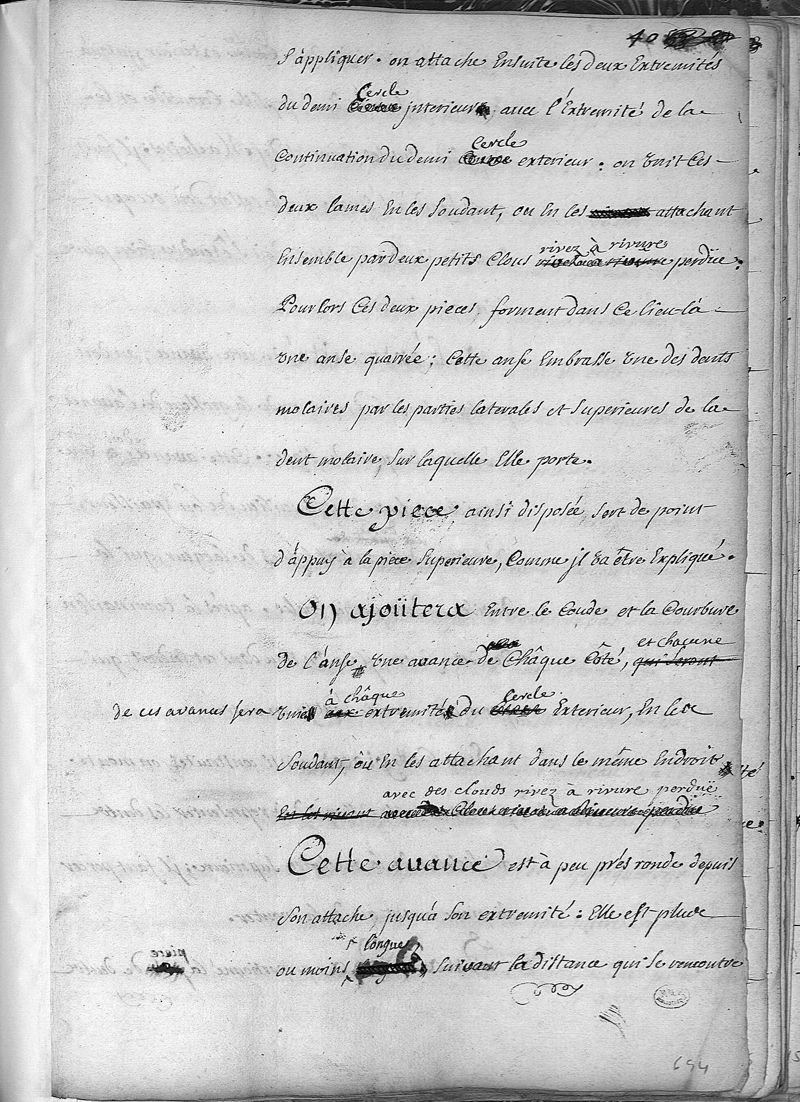 40
s'appliquer. on attache Ensuite les deux Extremités
Cercle
du demi interieur, avec l'Extremité de la
Cercle
Continuation du demi exterieur: on unit Ces
deux lames En les Soudant, ou En les attachant
rivez à rivure
Ensemble par deux petits Clous perdüe:
Pour lors Ces deux pieces, forment dans Ce lieu-là
une anse quarrée; Cette anse Embrasse une des dents
molaires par les parties laterales et Superieures de la
dent molaire, sur laquelle Elle porte.
Cette piece, ainsi disposée, sert de point
d'appuy à la piece Superieure, Comme il va être Expliqué.
On ajoûtera Entre le Coude et la Courbure
et chacune
de l'anse, une avance de Châque Côté, qui seront
à châque Cercle
de ces avances sera unie aux extremité du Exterieur, En les
Soudant, ou En les attachant dans le même Endroit
avec des clouds rivez à rivure perdüe
En les rivant
Cette avance est à peu prés ronde depuis
Son attache jusqu'à son extremité: Elle est plus
longue
ou moins Suivant la distance qui se rencontre
piece
694